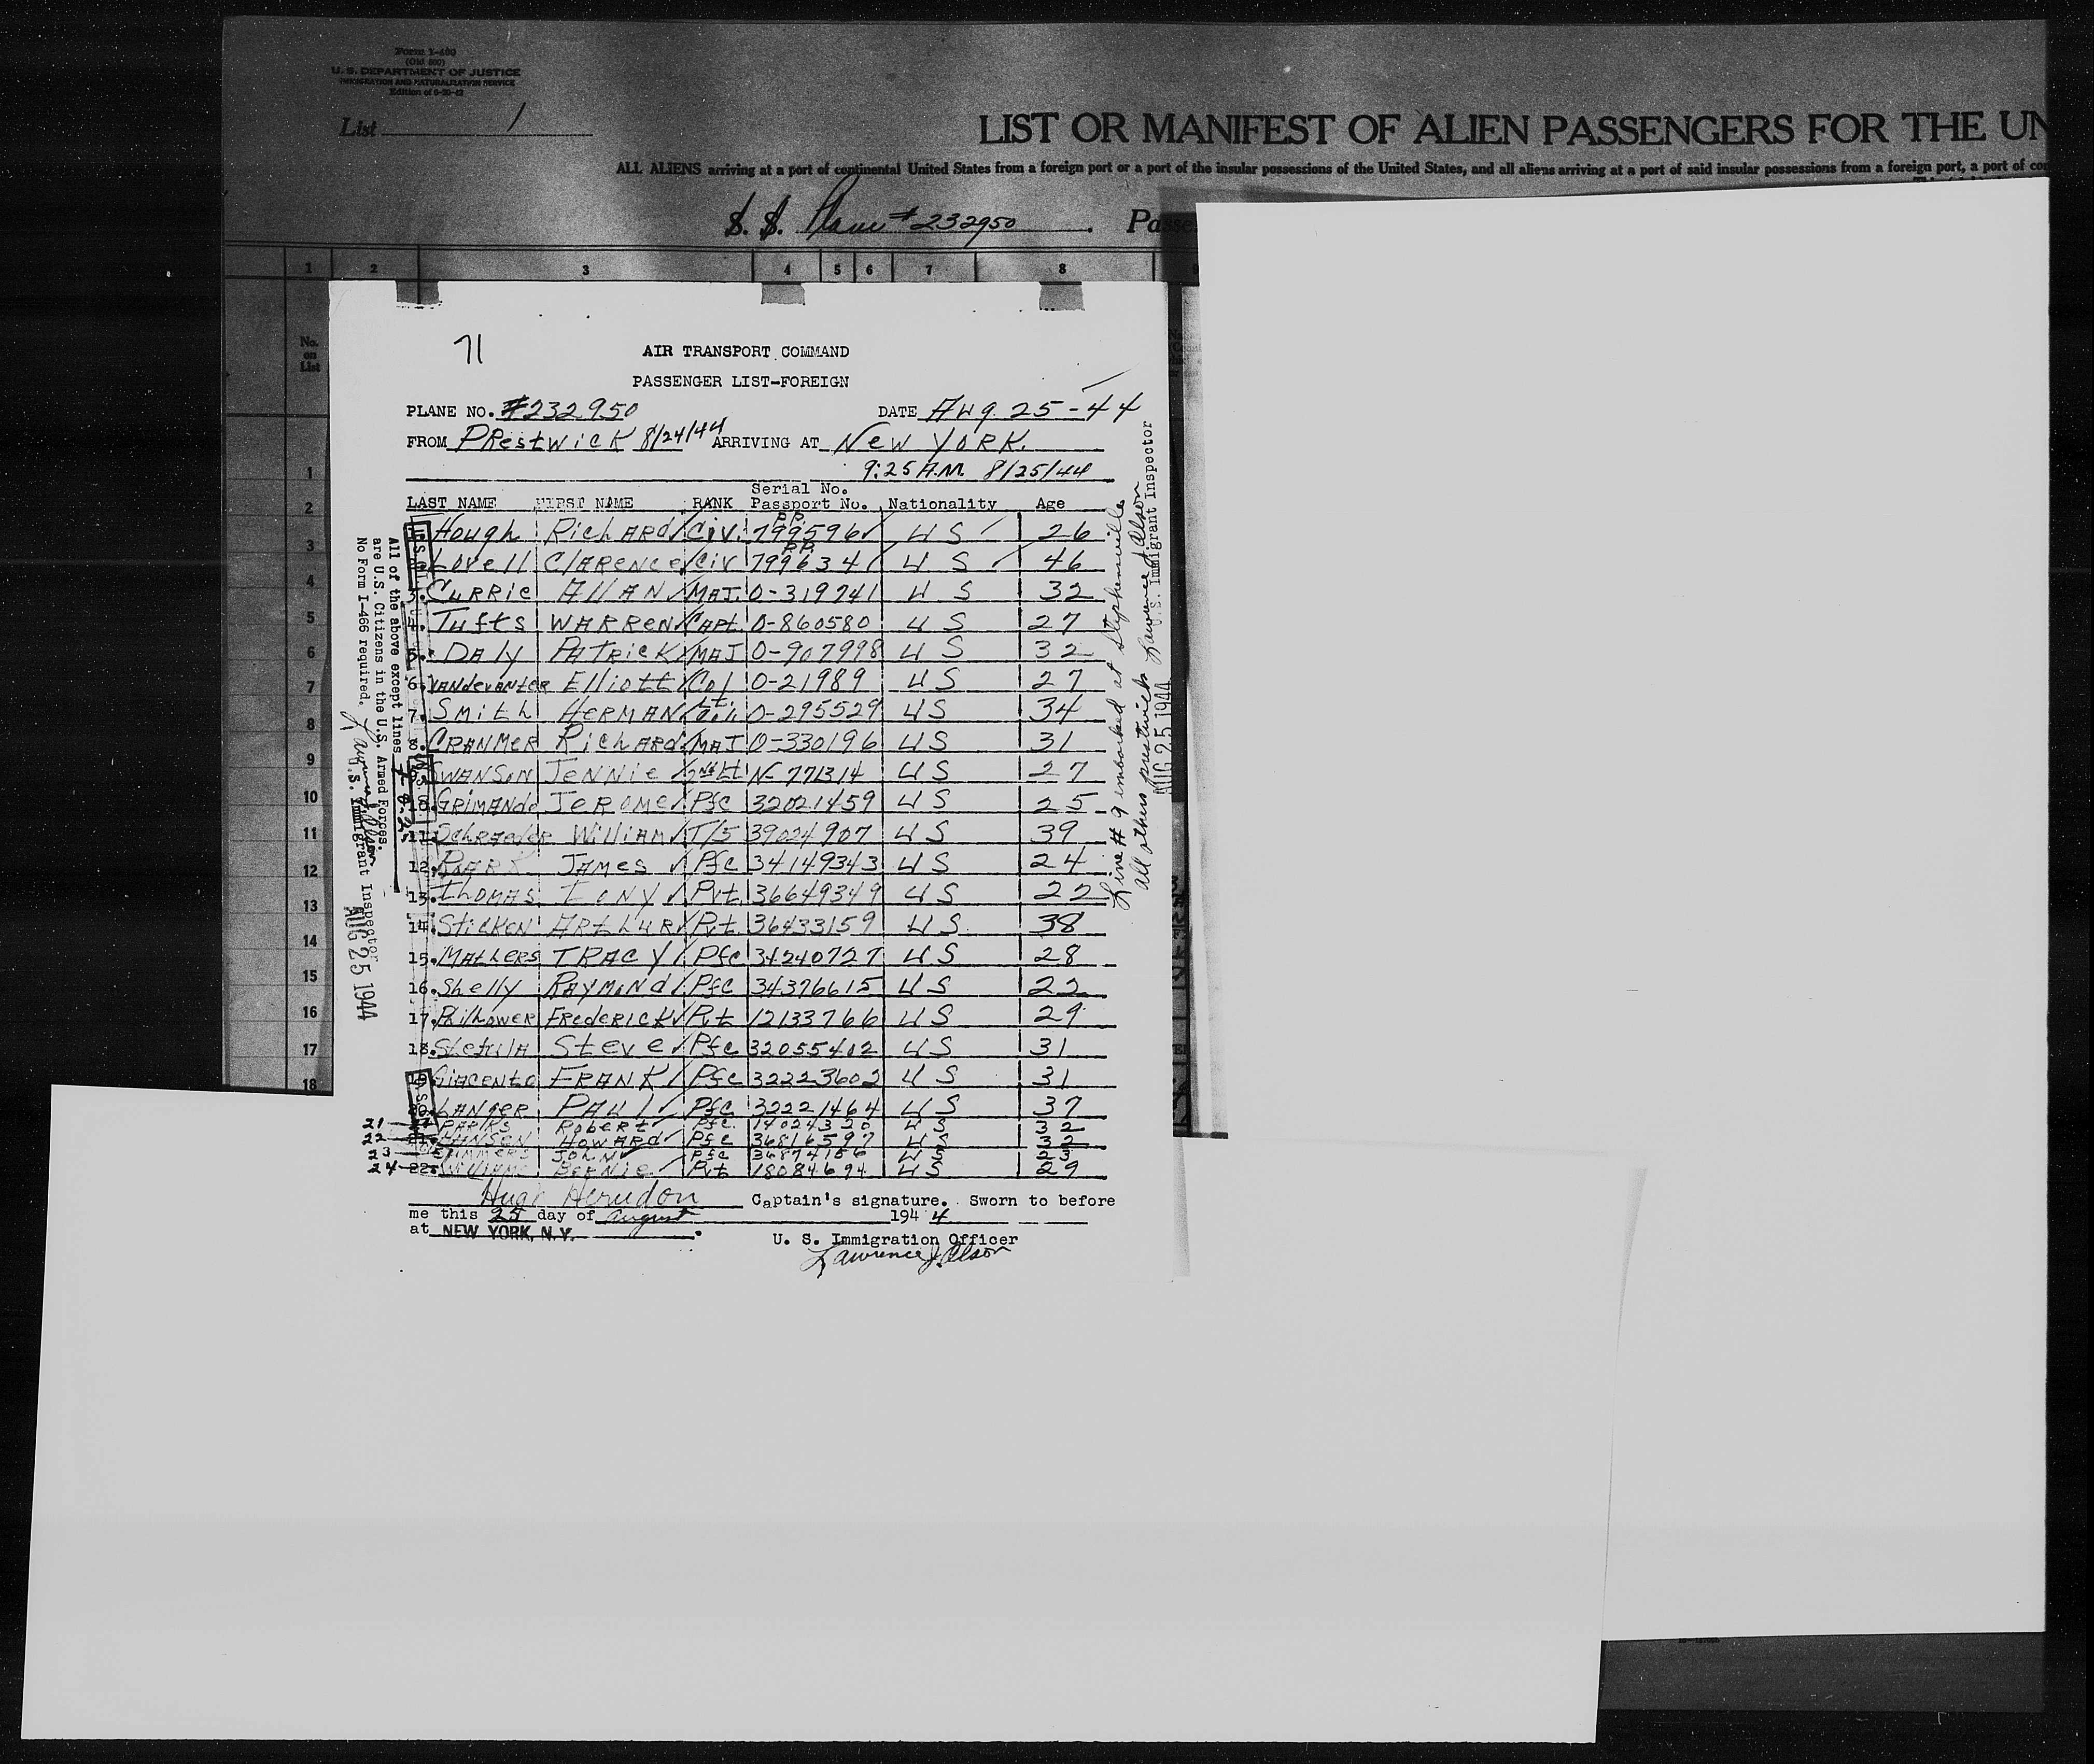 Form I-460
(Old 500)
U. S. DEPARTMENT OF JUSTICE
IMMIGRATION AND NATURALIZATION SERVICE
List 1
LIST OR MANIFEST OF ALIEN PASSENGERS FOR THE UN
ALL ALIENS arriving at a port of continental United States from a foreign port or a port of the insular possessions of the United States, and all aliens arriving at a port of said insular possessions from a foreign port, a port of con
S. S. Plane # 232950 . Passe
1 2 3 4 5 6 7 8 9
No. on List
71
AIR TRANSPORT COMMAND
PASSENGER LIST-FOREIGN
PLANE NO. #232950 DATE AUG. 25-44
FROM PRestwicK 8/24/44 ARRIVING AT New YORK.
9:25 A.M. 8/25/44
LAST NAME FIRST NAME RANK Serial No. Passport No. Nationality Age
1. Hough RichARD Civ. P.P. 799596 U S 26
2. Lovell CLARENCE Civ P.P. 799634 U S 46
3. CURRIE AllAN MAJ. O-319741 U S 32
4. Tufts WARREN CAPt. O-860580 U S 27
5. DAly PATRicK MAJ O-907998 U S 32
6. VANdevanter Elliott Col O-21989 U S 27
7. SMith HERMAN Lt. Col. O-295529 U S 34
8. CRANMER RichARD MAJ O-330196 U S 31
9. SWANSON JENNIE 2nd Lt N-771314 U S 27
10. GRIMANdo JEROME Pfc 32021459 U S 25
11. Schrader WilliAM T/5 39024907 U S 39
12. JAMES Pfc 34149343 U S 24
13. THOMAS TONY Pvt 36649349 U S 22
14. StickEN ARthUR Pvt. 36433159 U S 38
15. MAthers TRACY Pfc 34240727 U S 28
16. Shelly RAYMoNd Pfc 34376615 U S 22
17. Philhower FREdERICK Pvt 12133766 U S 29
18. Steve Pfc 32055402 U S 31
19. GIACENTO FRANK Pfc 32223602 U S 31
20. LANGER PAUl Pfc 32221464 U S 37
21 PARKS Robert Pfc. 14024320 U S 32
22 HANSEN HOWARD Pfc 36816597 U S 32
23 SIMMERS JOHN Pfc 36874156 U S 23
24 22. Williams BERNIE Pvt 18084694 U S 29
Hugh Herndon Captain's signature. Sworn to before
me this 25 day of August 1944
at NEW YORK, N.Y.
U. S. Immigration Officer
Lawrence J. Olson
All of the above except lines 1-8-2
are U.S. Citizens in the U.S. Armed Forces.
No Form I-466 required.
Lawrence J. Olson
U.S. Immigrant Inspector
AUG 25 1944
Line # 9 embarked at Stephenville
all others Prestwick Lawrence J Olson
U.S. Immigrant Inspector
AUG 25 1944
1
2
3
4
5
6
7
8
9
10
11
12
13
14
15
16
17
18